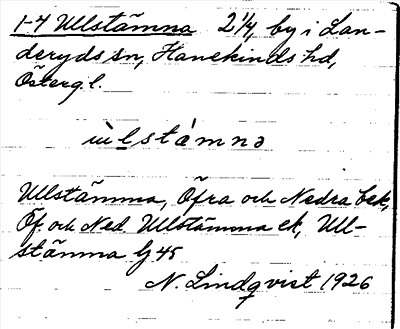 1-4 Ullstämma 2 1/4, by i Lan-
deryds sn, Hanekinds hd,
Östergl.
ùlstámnə
Ullstämma, Öfra och Nedra bek,
Öf. och Ned. Ullstämma ek, Ull-
stämma Gj 45
N. Lindqvist 1926